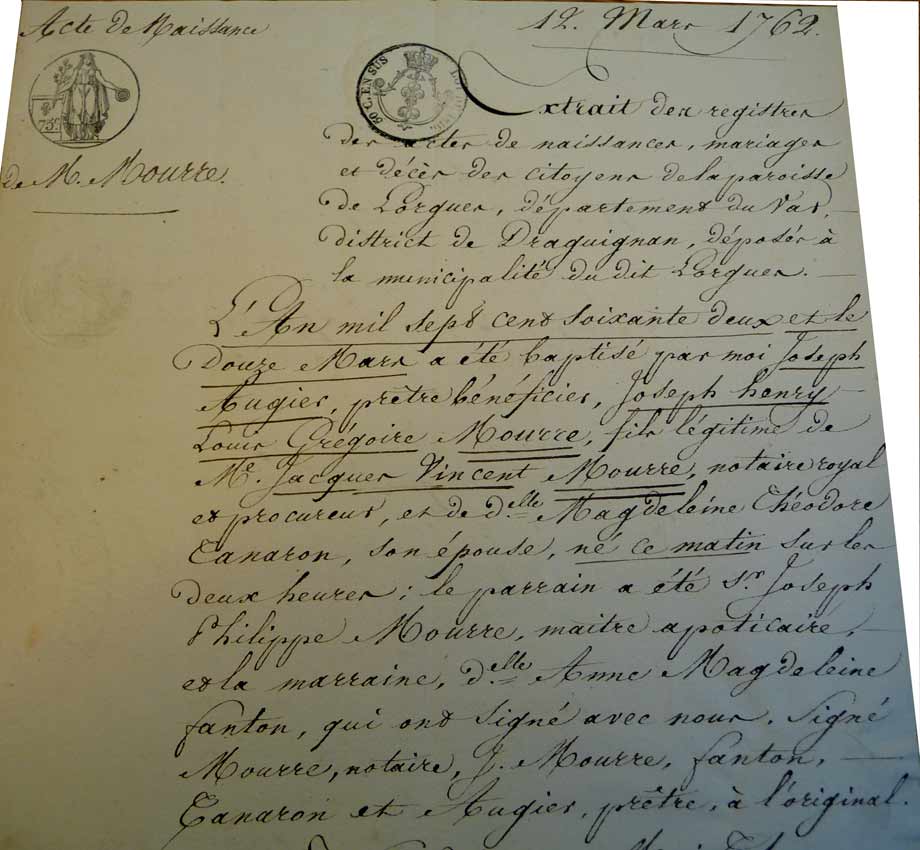 Acte de Naissance
12. Mars 1762.
75c
50 C. EN SUS
de M. Mourre.
Extrait des registres
des actes de naissances, mariages
et décès des citoyens de la paroisse
de Lorgues, département du Var,
district de Draguignan, déposés à
la municipalité du dit Lorgues.
L'An mil sept cent soixante deux et le
Douze Mars a été baptisé par moi Joseph
Augier, prêtre bénéficier, Joseph henry
Louis Grégoire Mourre, fils légitime de
Me. Jacques Vincent Mourre, notaire royal
et procureur, et de d.elle Magdeleine Théodore
Canaron, son épouse, né ce matin sur les
deux heures; le parrain a été Sr. Joseph
Philippe Mourre, maitre apoticaire,
et la marraine, d.elle Anne Magdeleine
fanton, qui ont signé avec nous. Signé
Mourre, notaire, J. Mourre, fanton,
Canaron et Augier, prêtre, à l'original.